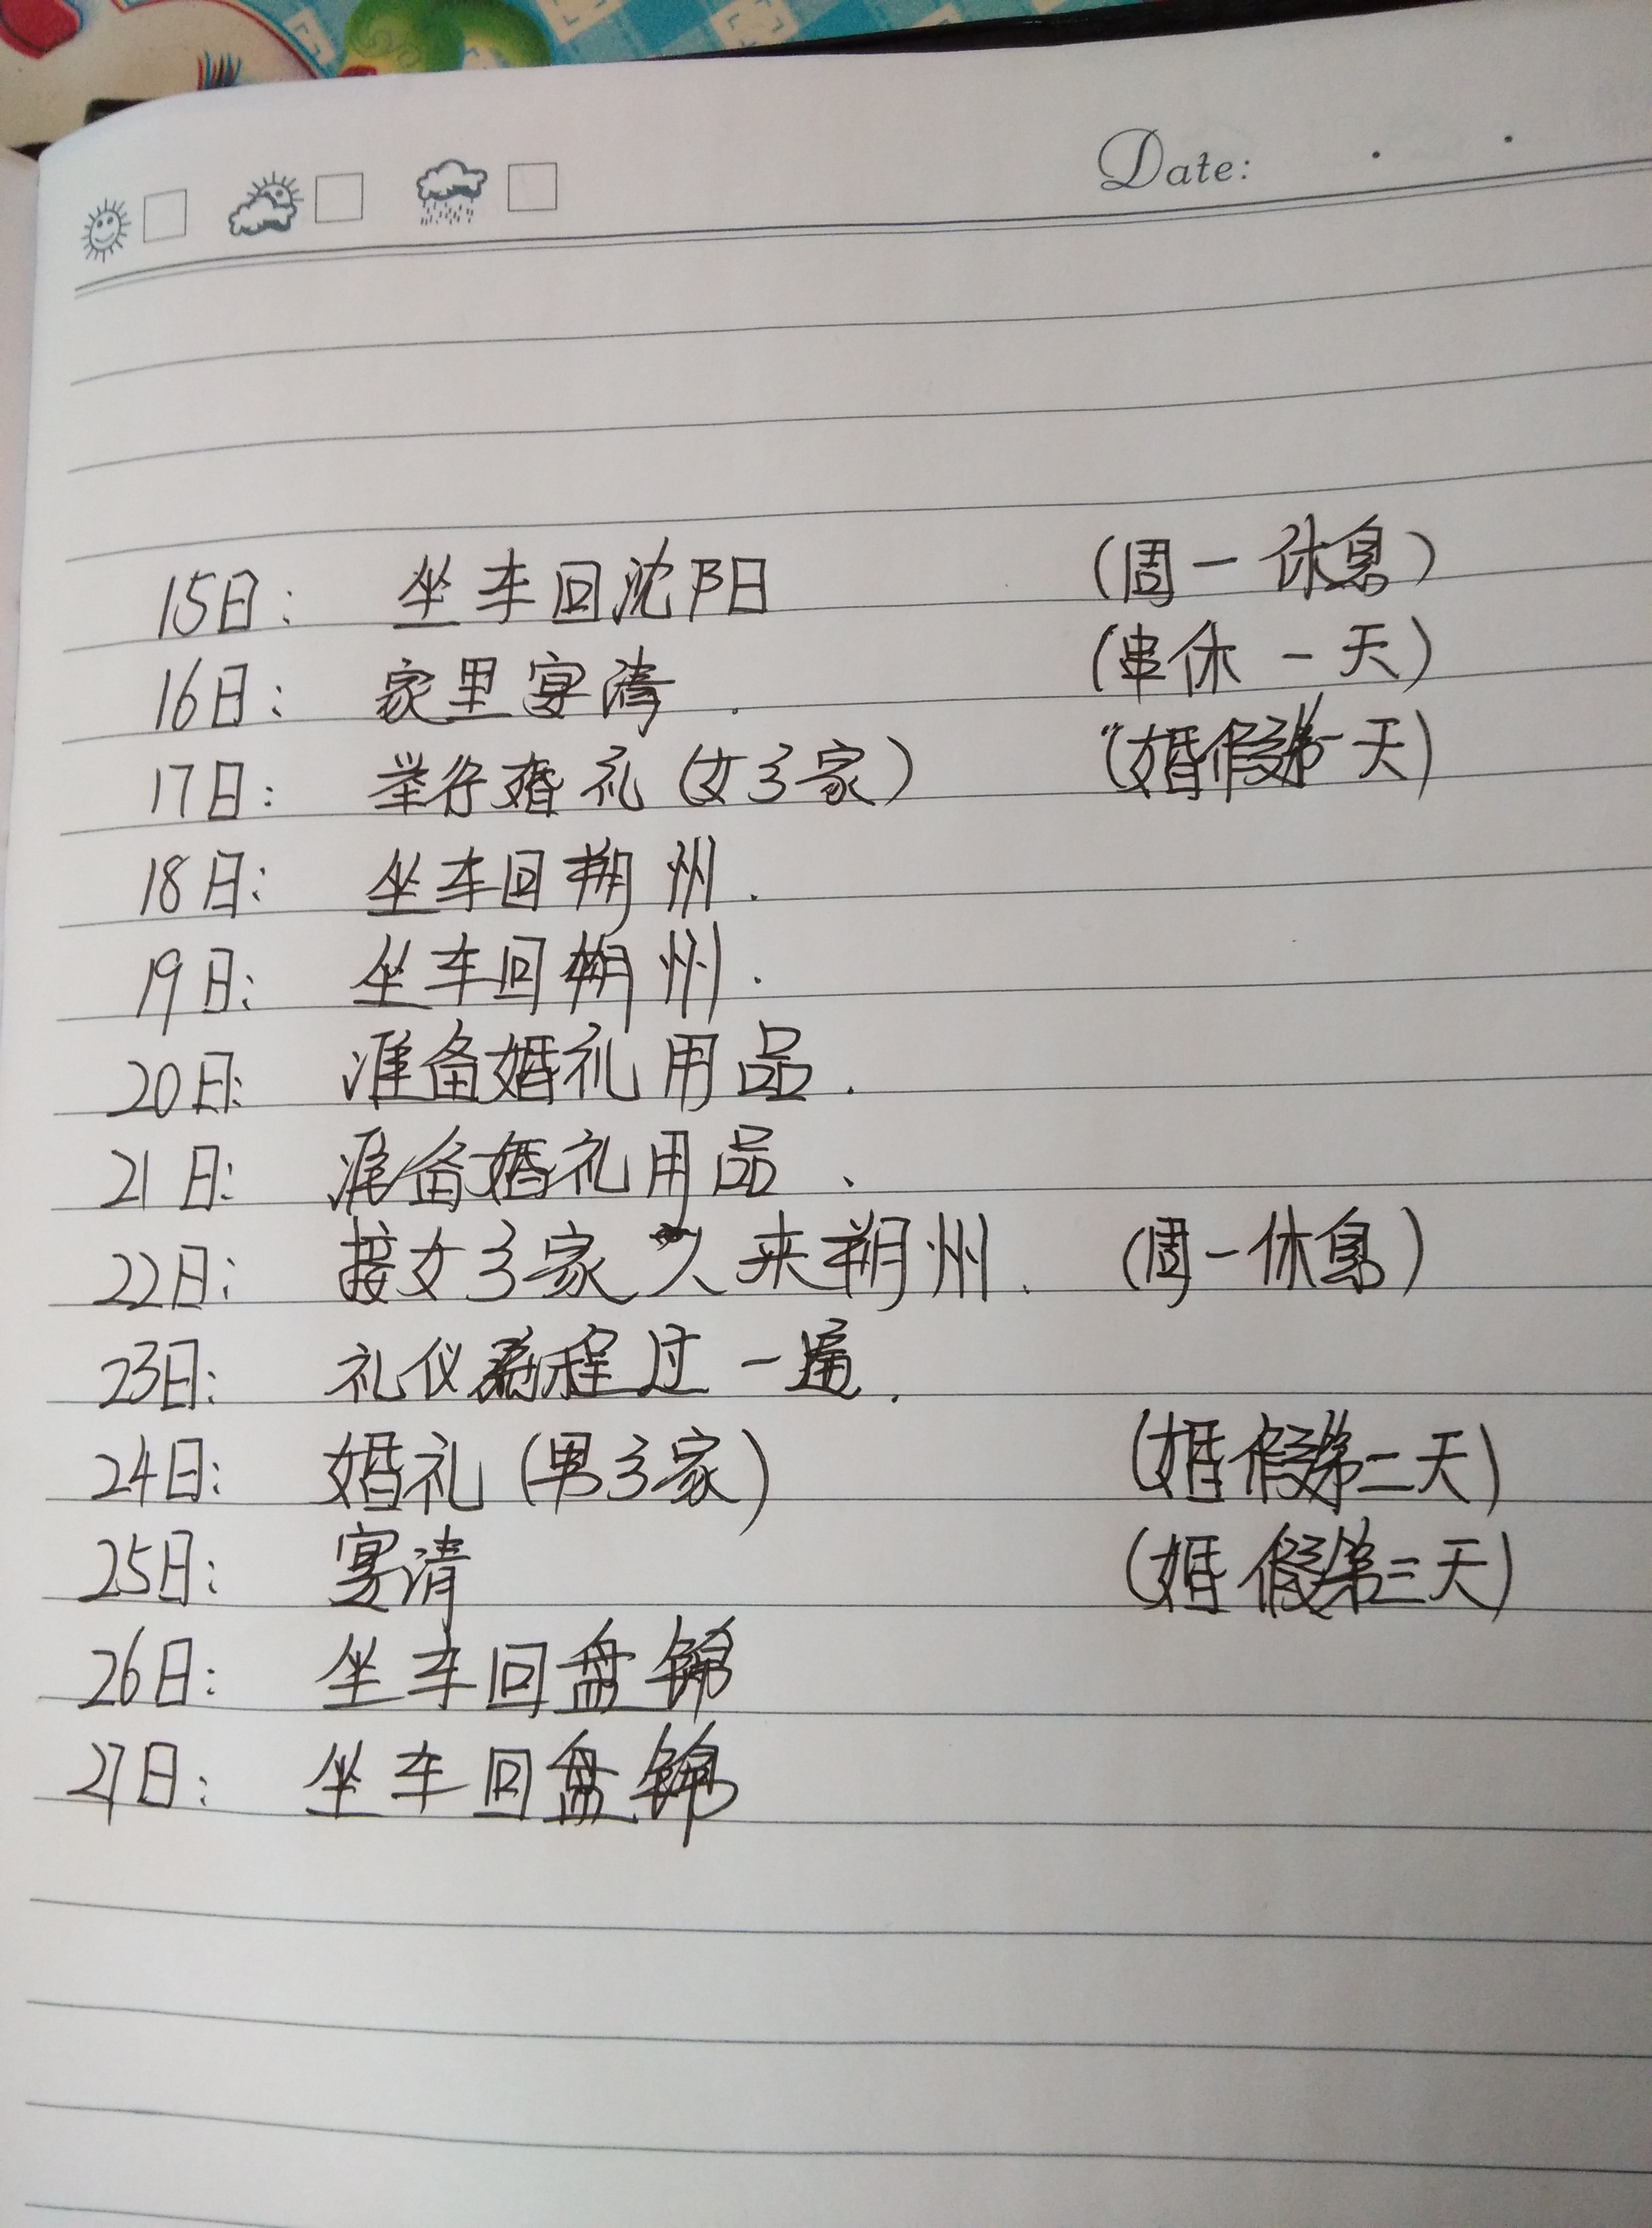 Date:
15日: 坐车回沈阳 (周一休息)
16日: 家里宴请. (串休一天)
17日: 举行婚礼(女方家) (婚假第一天)
18日: 坐车回朔州.
19日: 坐车回朔州.
20日: 准备婚礼用品.
21日: 准备婚礼用品、
22日: 接女方家人来朔州. (周一休息)
23日: 礼仪流程过一遍.
24日: 婚礼(男方家) (婚假第二天)
25日: 宴请 (婚假第三天)
26日: 坐车回盘锦
27日: 坐车回盘锦